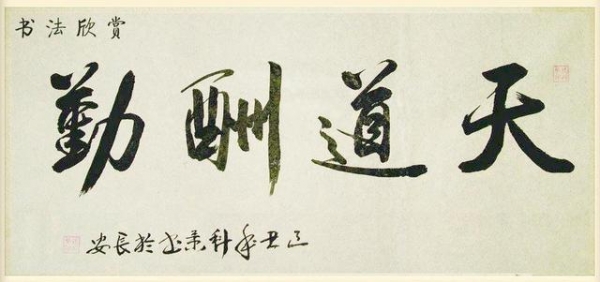 书法欣赏
天道酬勤
己丑年科书於長安